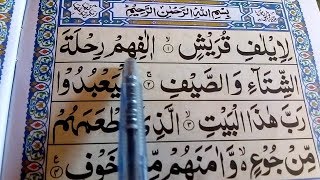 بِسْمِ اللهِ الرَّحْمٰنِ الرَّحِيْمِ
لِاِيْلٰفِ قُرَيْشٍ ۙ‏﴿۱﴾ اٖلٰفِهِمْ رِحْلَةَ
الشِّتَآءِ وَالصَّيْفِ ۚ‏﴿۲﴾ فَلْيَعْبُدُوْا
رَبَّ هٰذَا الْبَيْتِ ۙ‏﴿۳﴾ الَّذِيْۤ اَطْعَمَهُمْ
مِّنْ جُوْعٍ ۙ وَّاٰمَنَهُمْ مِّنْ خَوْفٍ ‏﴿۴﴾